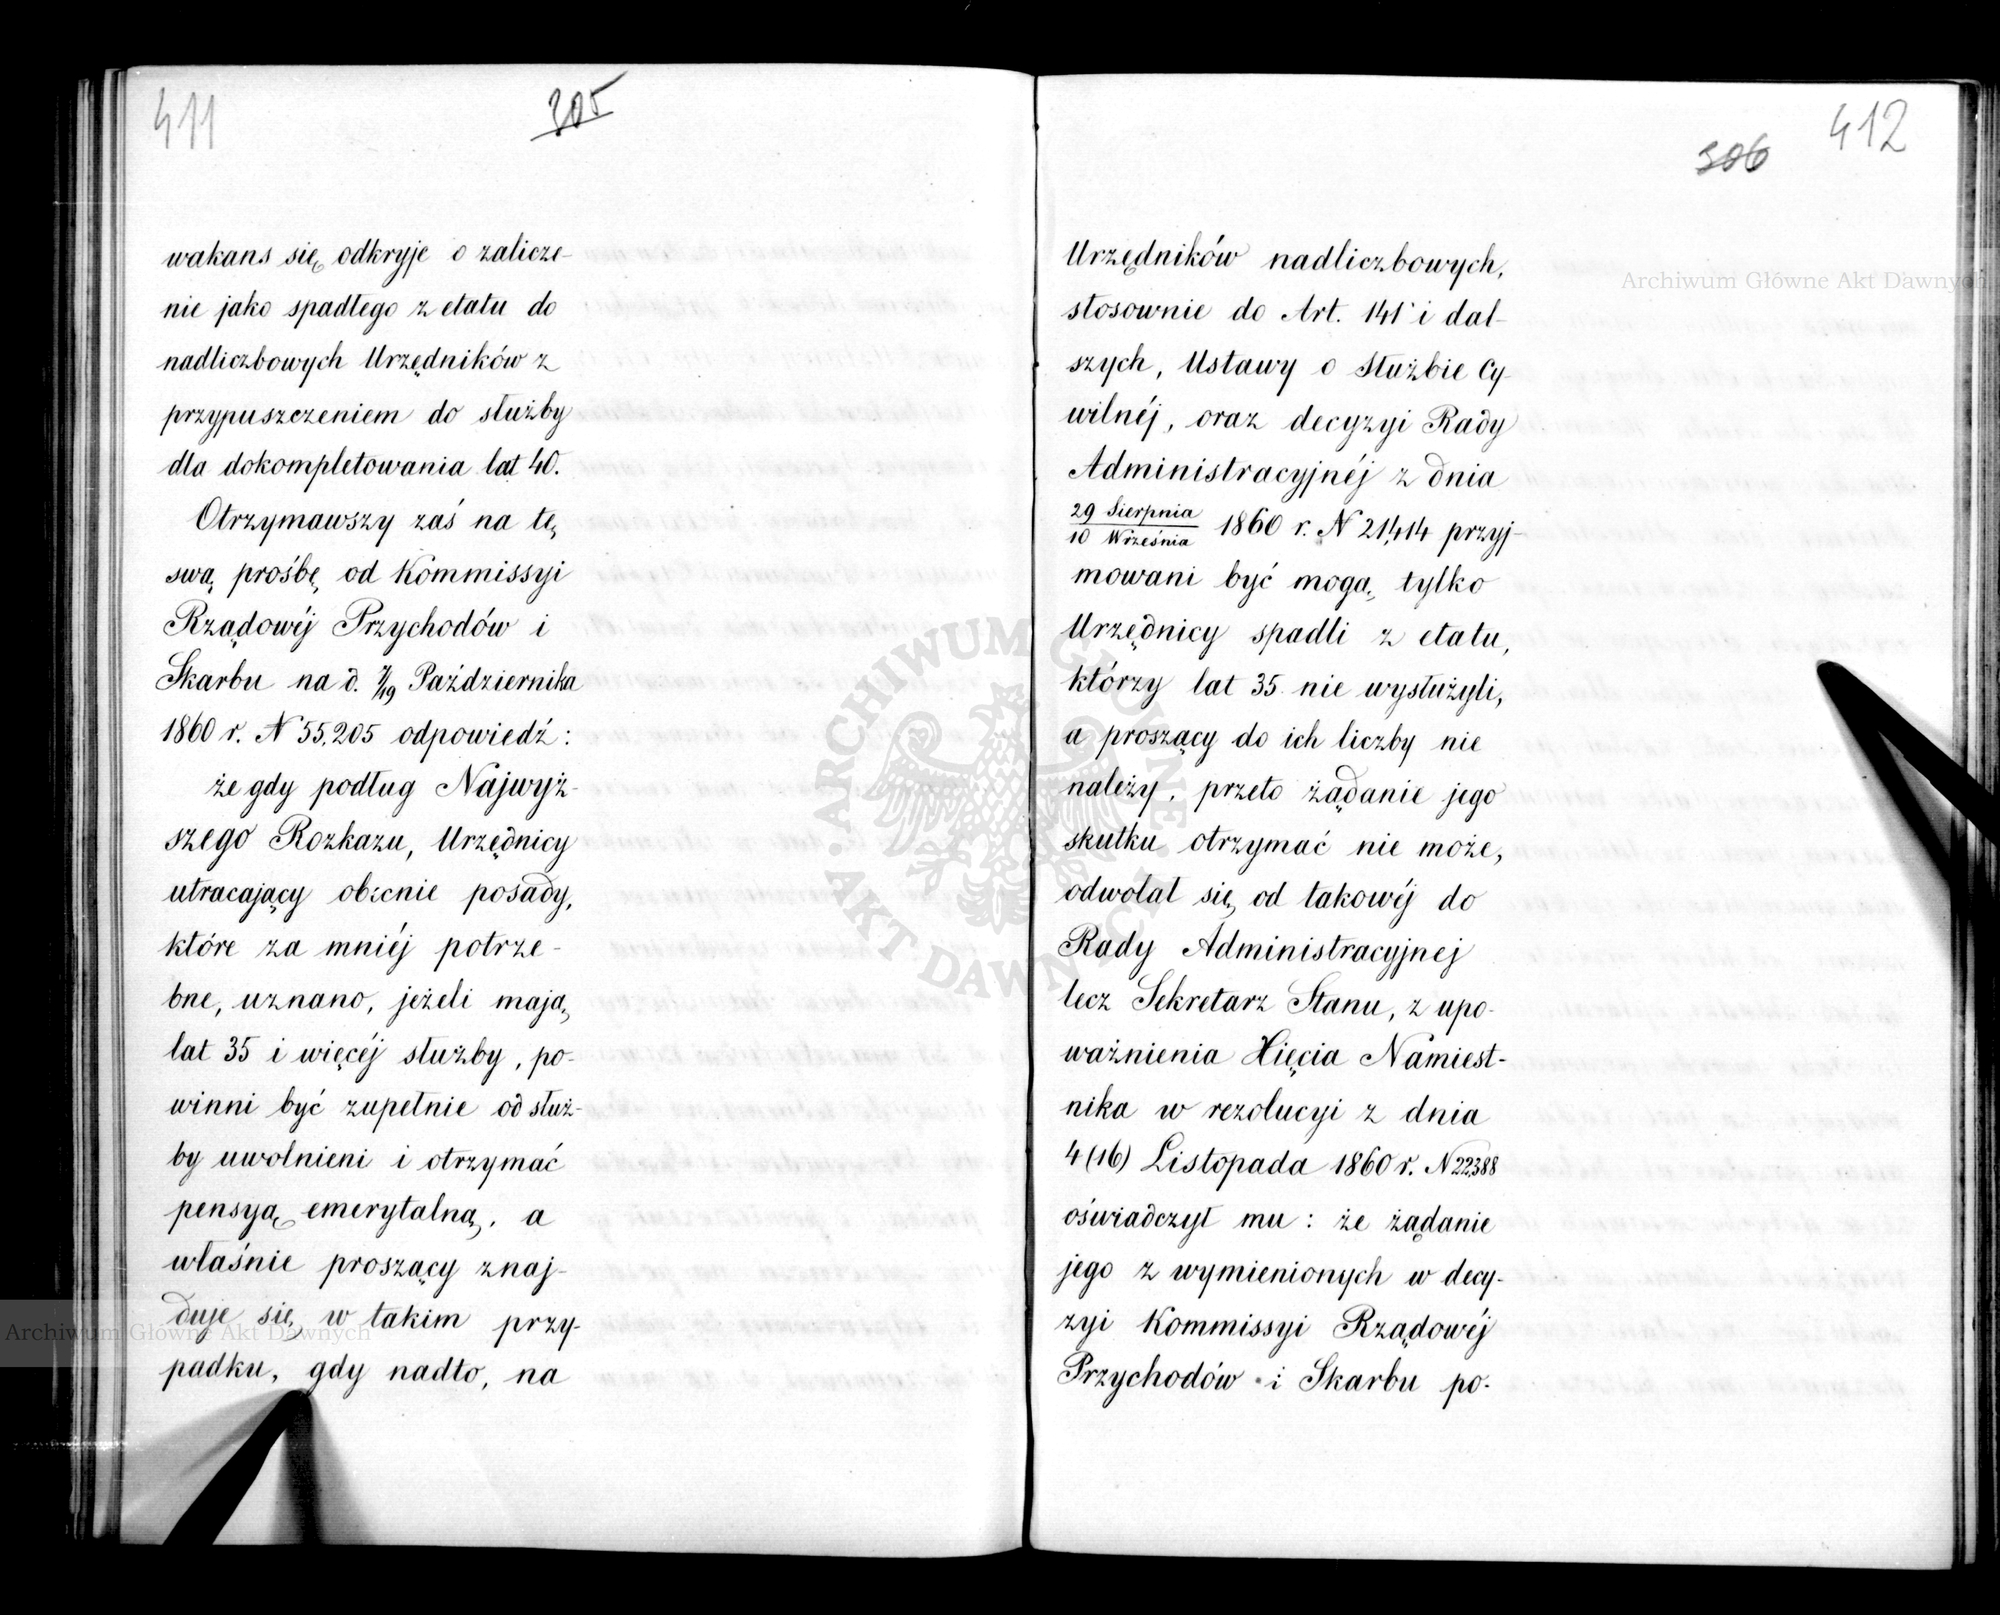 411
305
wakans się odkryje o zalicze-
nie jako spadłego z etatu do
nadliczbowych Urzędników z
przypuszczeniem do służby
dla dokompletowania lat 40.
Otrzymawszy zaś na tę
swą prośbę od Kommissyi
Rządowéj Przychodów i
Skarbu na d. 7/19 Października
1860 r. N 55,205 odpowiedź:
że gdy podług Najwyż-
szego Rozkazu, Urzędnicy
utracający obecnie posady,
które za mniéj potrze-
bne, uznano, jeżeli mają,
lat 35 i więcéj służby, po-
winni być zupełnie od służ-
by uwolnieni i otrzymać
pensyą emerytalną, a
właśnie proszący znaj-
duje się w takim przy-
padku, gdy nadto, na
412
306
Urzędników nadliczbowych,
stosownie do Art. 141 i dal-
szych, Ustawy o Służbie Cy-
wilnéj, oraz decyzyi Rady
Administracyjnéj z dnia
29 Sierpnia/10 Września 1860 r. N 21,414 przyj-
mowani być mogą, tylko
Urzędnicy spadli z etatu,
którzy lat 35 nie wysłużyli,
a proszący do ich liczby nie
należy, przeto żądanie jego
skutku otrzymać nie może,
odwołał się od takowéj do
Rady Administracyjnej
lecz Sekretarz Stanu, z upo-
ważnienia Xięcia Namiest-
nika w rezolucyi z dnia
4 (16) Listopada 1860 r. N 22,388
oświadczył mu: że żądanie
jego z wymienionych w decy-
zyi Kommissyi Rządowéj
Przychodów i Skarbu po-
ARCHIWUM GŁÓWNE AKT DAWNYCH
Archiwum Główne Akt Dawnych
Archiwum Główne Akt Dawnych